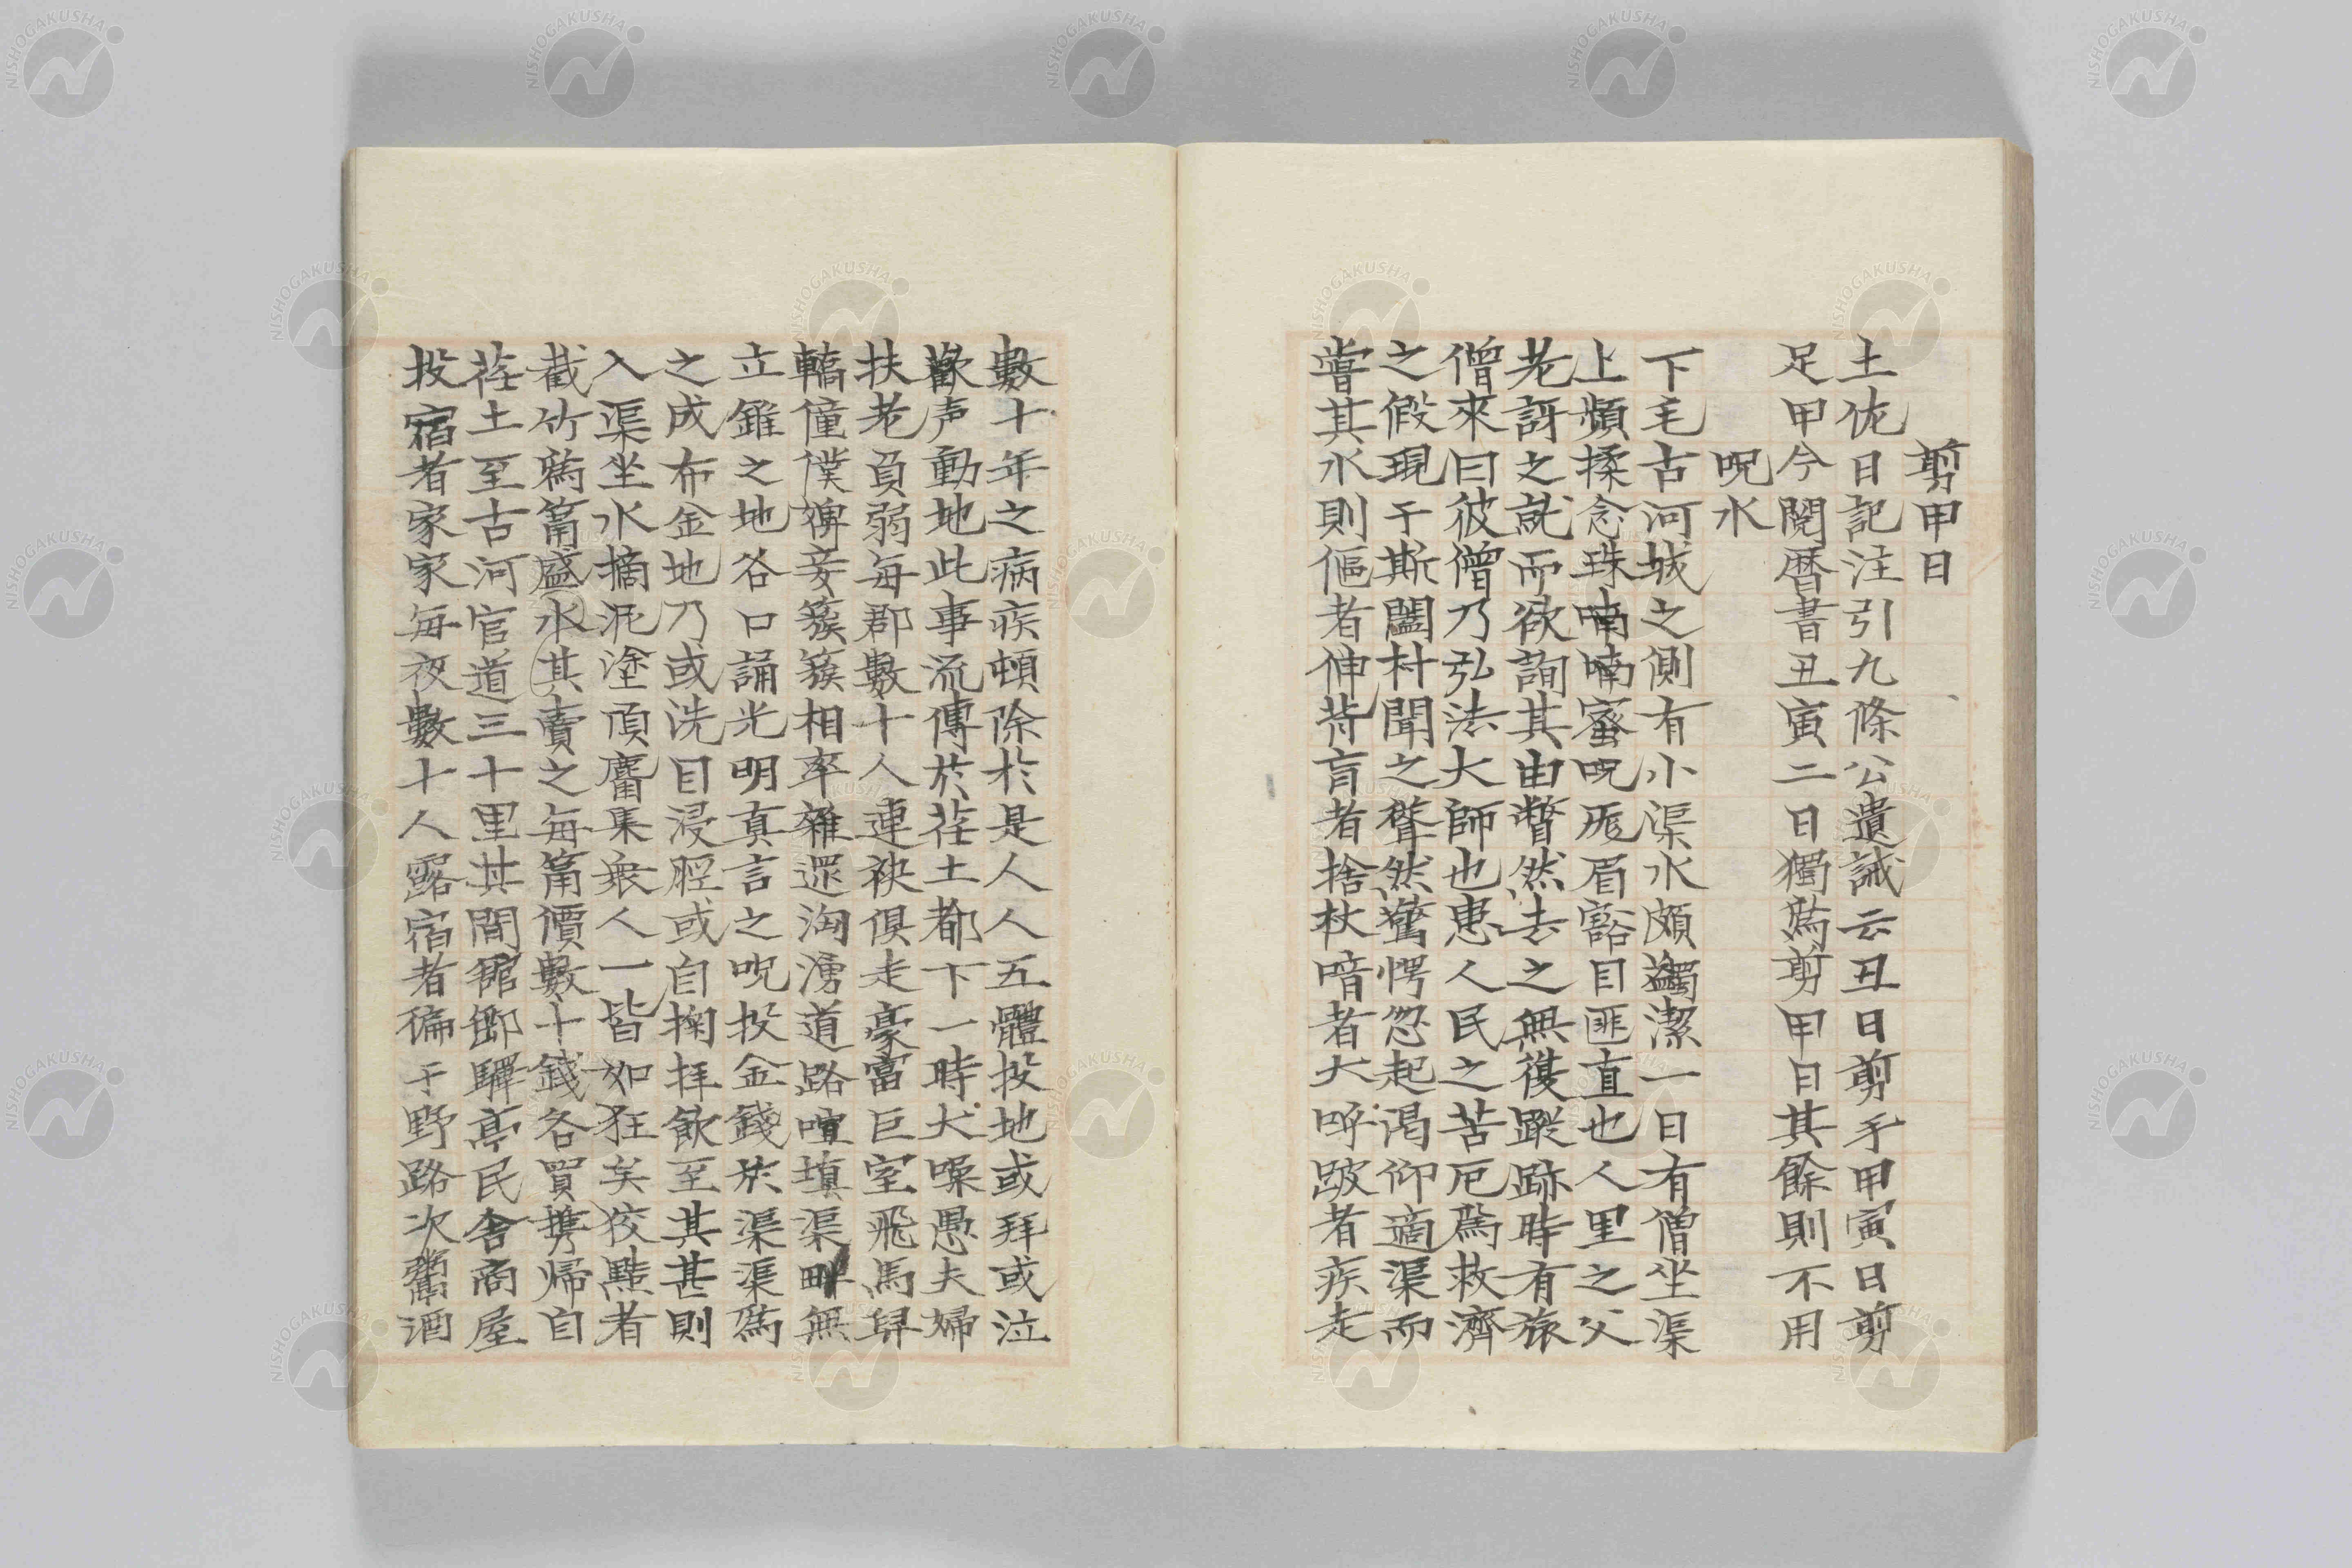 剪甲日
土佐日記注引九條公遺誡云丑日剪手甲寅日剪
足甲今閱暦書丑寅二日獨爲剪甲日其餘則不用
呪水
下毛古河城之側有小渠水頗蠲潔一日有僧坐渠
上頻揉念珠喃喃蜜呪厖眉豁目匪直也人里之父
老訝之就而欲詢其由瞥然去之無復蹤跡時有旅
僧來曰彼僧乃弘法大師也恵人民之苦厄爲救濟
之假現于斯闔村聞之聳然驚愕忽起渇仰適渠而
嘗其水則傴者伸荷盲者捨杖喑者大呼跛者疾走
數十年之病疾頓除於是人人五體投地或拜或泣
歡声動地此事流傳於荏土都下一時大噪愚夫婦
扶老負弱毎郡數十人連袂倶走豪富巨室飛馬舁
轎僮僕婢妾簇簇相率雜遝洶湧道路喧填渠畔無
立錐之地各口誦光明真言之呪投金錢於渠渠爲
之成布金地乃或洗目浸脛或自掬拝飲至其甚則
入渠坐水摘泥塗頂麕集衆人一皆如狂矣狡黠者
截竹爲筩盛水其賣之毎筩價數十錢各買携帰自
荏土至古河官道三十里其間館郵驛亭民舎商屋
投宿者家家毎夜數十人露宿者徧于野路次鬻酒
NISHOGAKUSHA